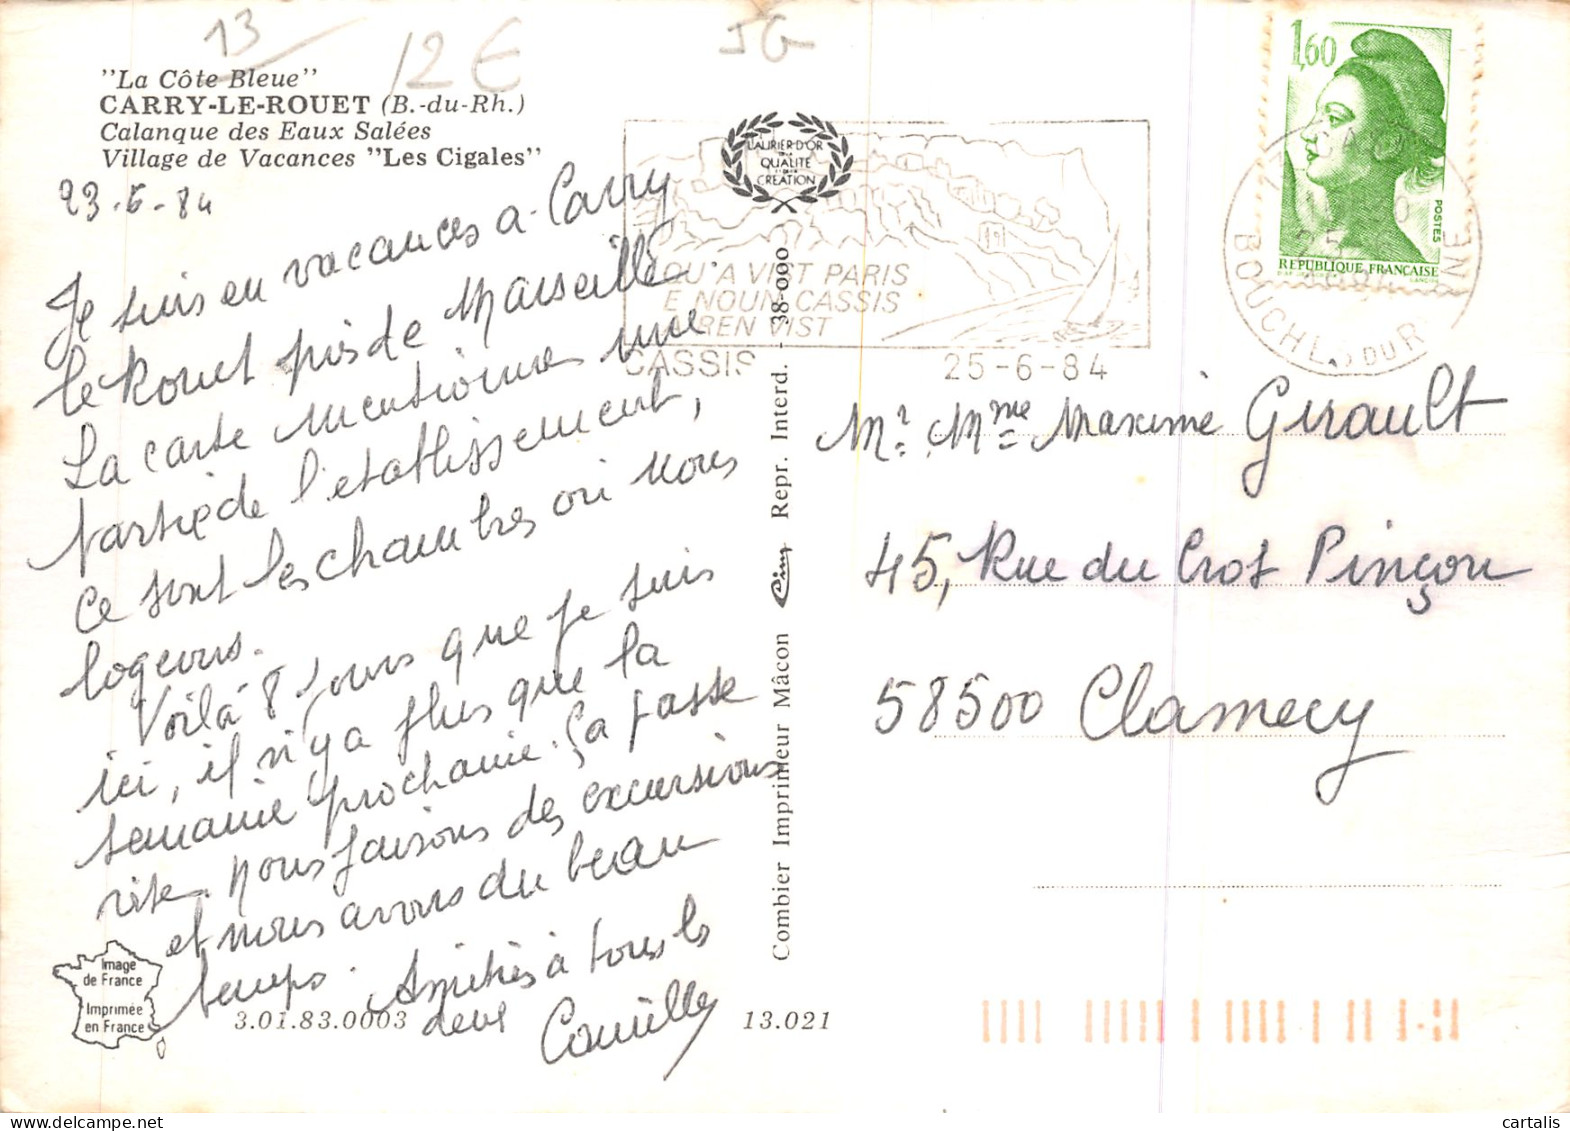 13
12€
JG
"La Côte Bleue"
CARRY-LE-ROUET (B.-du-Rh.)
Calanque des Eaux Salées
Village de Vacances "Les Cigales"
23-6-84
Je suis en vacances à Carry
le Rouet près de Marseille.
La carte mentionne une
partie de l'établissement,
ce sont les chambres où nous
logeons.
Voilà 8 jours que je suis
ici, il n'y a plus que la
semaine prochaine. Ça passe
vite. nous faisons des excursions
et nous avons du beau
temps. Amitiés à tous les
deux Camille
Image
de France
Imprimée
en France
3.01.83.0003
13.021
Combier Imprimeur Mâcon Cim Repr. Interd. - 38-000
LAURIER D'OR
QUALITÉ
CRÉATION
QU'A VIST PARIS
E NOUN CASSIS
REN VIST
CASSIS
25-6-84
1,60
POSTES
REPUBLIQUE FRANÇAISE
BOUCHES DU R NE
Mr. Mme Maxime Girault
45, Rue du Crot Pinçon
58500 Clamecy
cartalis